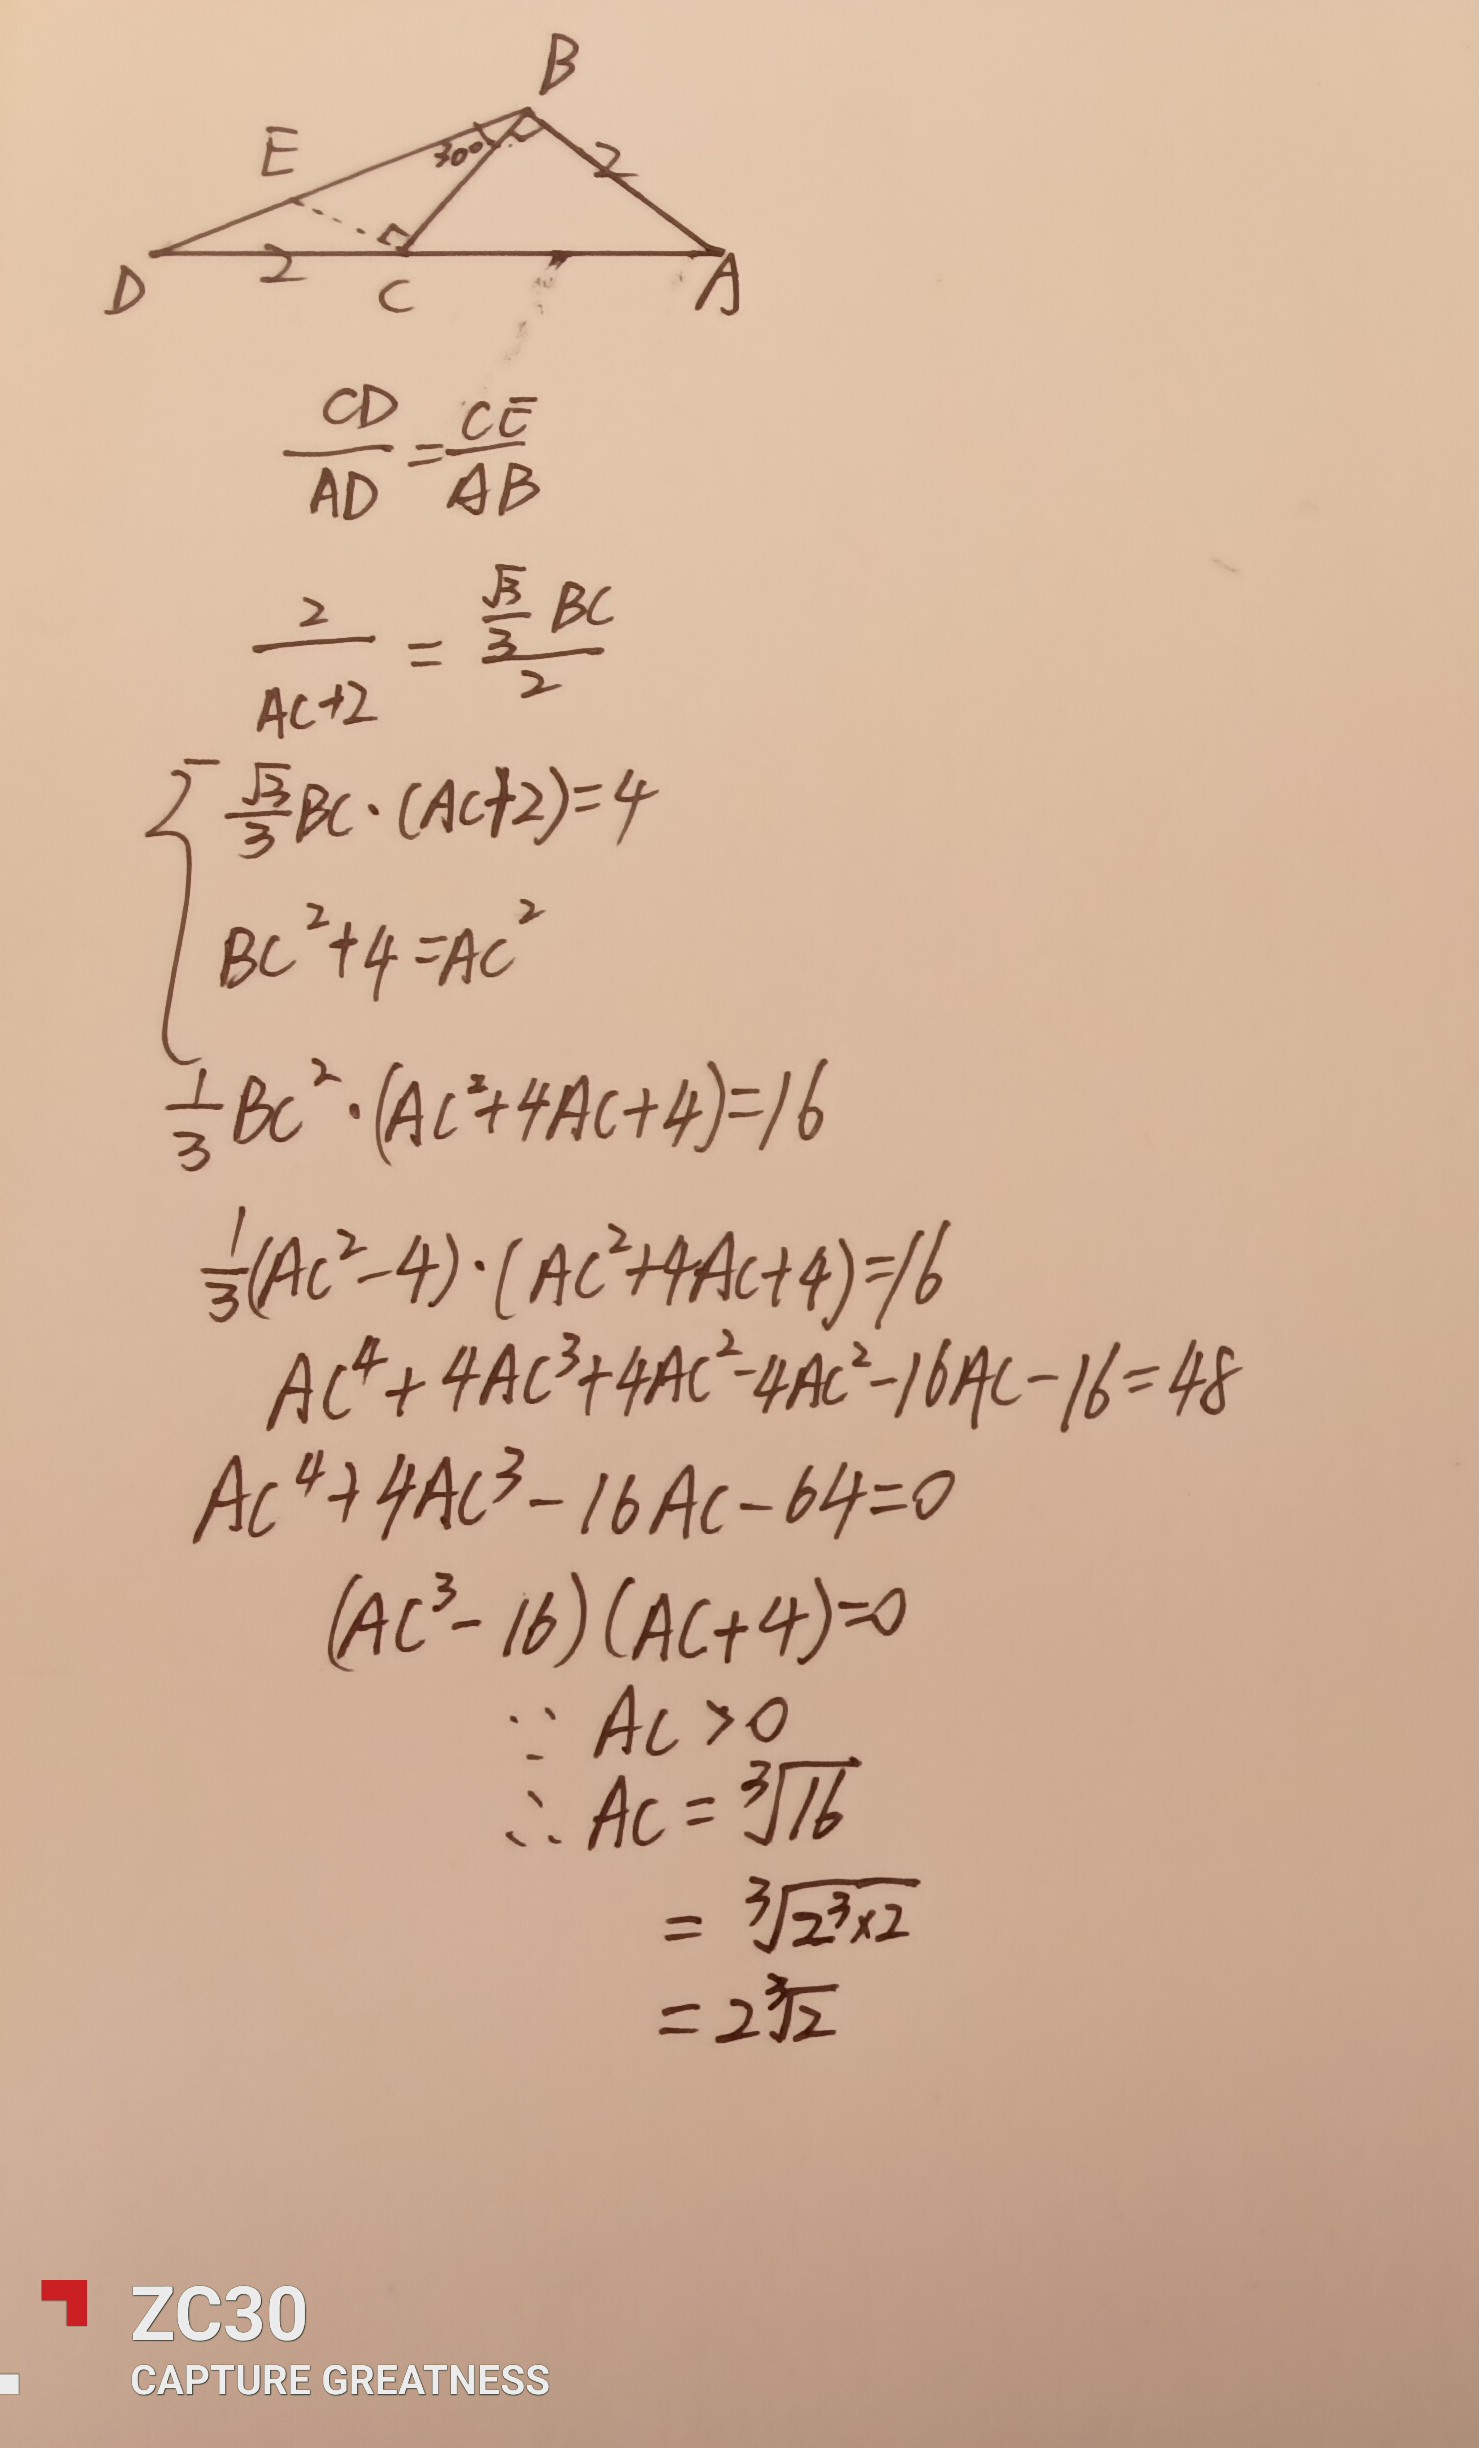 B
E 30° 2
D 2 C A
CD/AD = CE/AB
2/(AC+2) = (√3/3 BC)/2
{ √3/3 BC·(AC+2)=4
BC²+4=AC²
1/3 BC²·(AC²+4AC+4)=16
1/3(AC²-4)·(AC²+4AC+4)=16
AC⁴+4AC³+4AC²-4AC²-16AC-16=48
AC⁴+4AC³-16AC-64=0
(AC³-16)(AC+4)=0
∵ AC>0
∴ AC=∛16
=∛(2³×2)
=2∛2
ZC30
CAPTURE GREATNESS